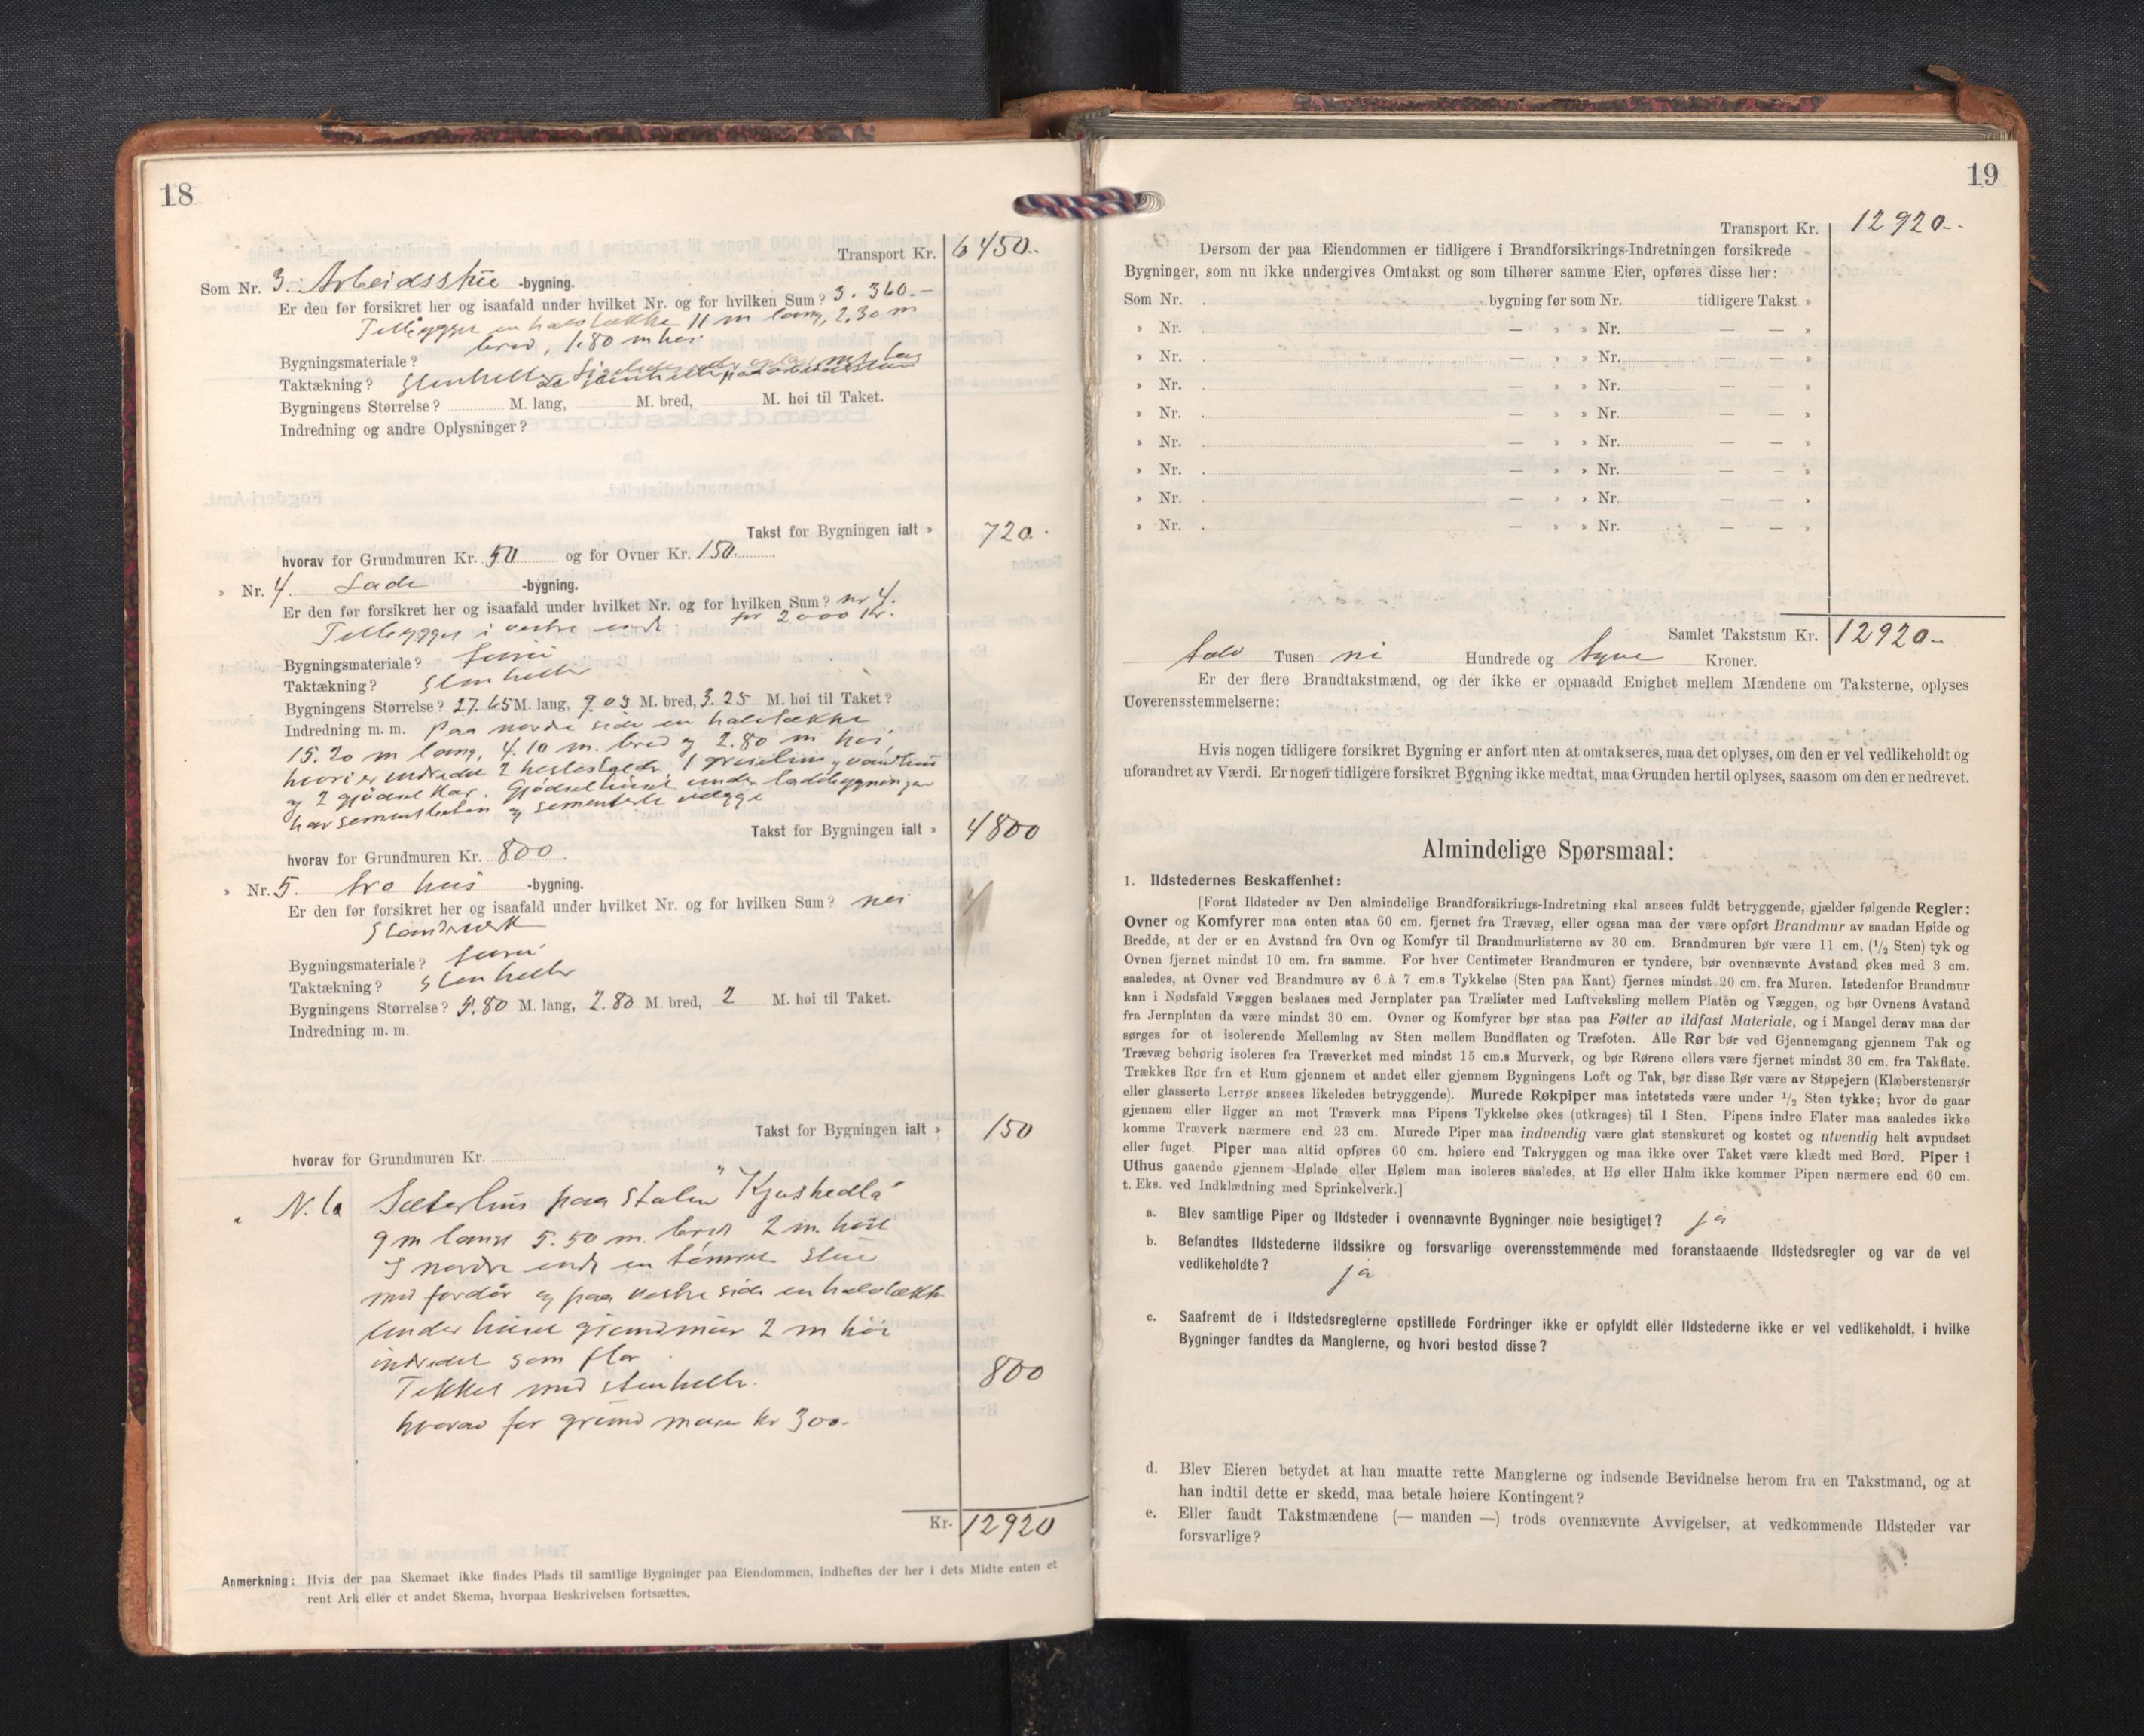 18
Transport Kr. 6450.-
Som Nr. 3. Arbeidsstue -bygning.
Er den før forsikret her og isaafald under hvilket Nr. og for hvilken Sum? 3. 360.-
Tilbygget en halvtække 11 m lang, 2,30 m
bred, 1.80 m høi
Bygningsmateriale?
Taktækning? Stenheller
Bygningens Størrelse? M. lang, M. bred, M. høi til Taket.
Indredning og andre Oplysninger?
Takst for Bygningen ialt » 720.-
hvorav for Grundmuren Kr. 50 og for Ovner Kr. 150
» Nr. 4. Lade -bygning.
Er den før forsikret her og isaafald under hvilket Nr. og for hvilken Sum? nr 4.
Tilbygget i vestre ende for 2000 Kr.
Bygningsmateriale? furu
Taktækning? Stenheller
Bygningens Størrelse? 27.65 M. lang, 9.03 M. bred, 3.25 M. høi til Taket?
Indredning m. m. Paa nordre side en halvtække
15.20 m lang, 4.10 m. bred og 2.80 m høi,
hvori er indredet 2 hestestalde 1 grisehus, vandhus
og 2 gjødselkar. Gjødselhuset under ladebygningen
har sementbeton og sementerte vægge
Takst for Bygningen ialt » 4800
hvorav for Grundmuren Kr. 800.
» Nr. 5. hus -bygning.
Er den før forsikret her og isaafald under hvilket Nr. og for hvilken Sum? nei
Standverk
Bygningsmateriale? furu
Taktækning? Stenheller
Bygningens Størrelse? 5.80 M. lang, 2.80 M. bred, 2 M. høi til Taket.
Indredning m. m.
Takst for Bygningen ialt » 150
hvorav for Grundmuren Kr.
N. 6 Sæterhus paa stølen
9 m langt 5.50 m. bredt 2 m. høit
I nordre ende en tømret stue
med fordør og paa vestre side en halvtække
Under huset grundmur 2 m høi
indredet som flor.
Tekket med stenheller. 800
hvorav for grundmuren kr 300.-
Kr. 12920
Anmerkning: Hvis der paa Skemaet ikke findes Plads til samtlige Bygninger paa Eiendommen, indheftes der her i dets Midte enten et
rent Ark eller et andet Skema, hvorpaa Beskrivelsen fortsættes.
19
Transport Kr. 12920.-
Dersom der paa Eiendommen er tidligere i Brandforsikrings-Indretningen forsikrede
Bygninger, som nu ikke undergives Omtakst og som tilhører samme Eier, opføres disse her:
Som Nr. bygning før som Nr. tidligere Takst »
» Nr. — » » Nr. — — »
» Nr. — » » Nr. — — »
» Nr. — » » Nr. — — »
» Nr. — » » Nr. — — »
» Nr. — » » Nr. — — »
» Nr. — » » Nr. — — »
» Nr. — » » Nr. — — »
» Nr. — » » Nr. — — »
Samlet Takstsum Kr. 12920.-
tolv Tusen ni Hundrede og tyve Kroner.
Er der flere Brandtakstmænd, og der ikke er opnaadd Enighet mellem Mændene om Taksterne, oplyses
Uoverensstemmelserne:
Hvis nogen tidligere forsikret Bygning er anført uten at omtakseres, maa det oplyses, om den er vel vedlikeholdt og
uforandret av Værdi. Er nogen tidligere forsikret Bygning ikke medtat, maa Grunden hertil oplyses, saasom om den er nedrevet.
Almindelige Spørsmaal:
1. Ildstedernes Beskaffenhet:
[Forat Ildsteder av Den almindelige Brandforsikrings-Indretning skal ansees fuldt betryggende, gjælder følgende Regler:
Ovner og Komfyrer maa enten staa 60 cm. fjernet fra Trævæg, eller ogsaa maa der være opført Brandmur av saadan Høide og
Bredde, at der er en Avstand fra Ovn og Komfyr til Brandmurlisterne av 30 cm. Brandmuren bør være 11 cm. (1/2 Sten) tyk og
Ovnen fjernet mindst 10 cm. fra samme. For hver Centimeter Brandmuren er tyndere, bør ovennævnte Avstand økes med 3 cm.
saaledes, at Ovner ved Brandmure av 6 à 7 cm.s Tykkelse (Sten paa Kant) fjernes mindst 20 cm. fra Muren. Istedenfor Brandmur
kan i Nødsfald Væggen beslaaes med Jernplater paa Trælister med Luftveksling mellem Platen og Væggen, og bør Ovnens Avstand
fra Jernplaten da være mindst 30 cm. Ovner og Komfyrer bør staa paa Føtter av ildfast Materiale, og i Mangel derav maa der
sørges for et isolerende Mellemlag av Sten mellem Bundflaten og Træfoten. Alle Rør bør ved Gjennemgang gjennem Tak og
Trævæg behørig isoleres fra Træverket med mindst 15 cm.s Murverk, og bør Rørene ellers være fjernet mindst 30 cm. fra Takflate.
Trækkes Rør fra et Rum gjennem et andet eller gjennem Bygningens Loft og Tak, bør disse Rør være av Støpejern (Klæberstensrør
eller glasserte Lerrør ansees likeledes betryggende). Murede Røkpiper maa intetsteds være under 1/2 Sten tykke; hvor de gaar
gjennem eller ligger an mot Træverk maa Pipens Tykkelse økes (utkrages) til 1 Sten. Pipens indre Flater maa saaledes ikke
komme Træverk nærmere end 23 cm. Murede Piper maa indvendig være glat stenskuret og kostet og utvendig helt avpudset
eller fuget. Piper maa altid opføres 60 cm. høiere end Takryggen og maa ikke over Taket være klædt med Bord. Piper i
Uthus gaaende gjennem Hølade eller Hølem maa isoleres saaledes, at Hø eller Halm ikke kommer Pipen nærmere end 60 cm.
t. Eks. ved Indklædning med Sprinkelverk.]
a. Blev samtlige Piper og Ildsteder i ovennævnte Bygninger nøie besigtiget? ja
b. Befandtes Ildstederne ildssikre og forsvarlige overensstemmende med foranstaaende Ildstedsregler og var de vel
vedlikeholdte? ja
c. Saafremt de i Ildstedsreglerne opstillede Fordringer ikke er opfyldt eller Ildstederne ikke er vel vedlikeholdt, i hvilke
Bygninger fandtes da Manglerne, og hvori bestod disse?
d. Blev Eieren betydet at han maatte rette Manglerne og indsende Bevidnelse herom fra en Takstmand, og at
han indtil dette er skedd, maa betale høiere Kontingent?
e. Eller fandt Takstmændene (— manden —) trods ovennævnte Avvigelser, at vedkommende Ildsteder var
forsvarlige?